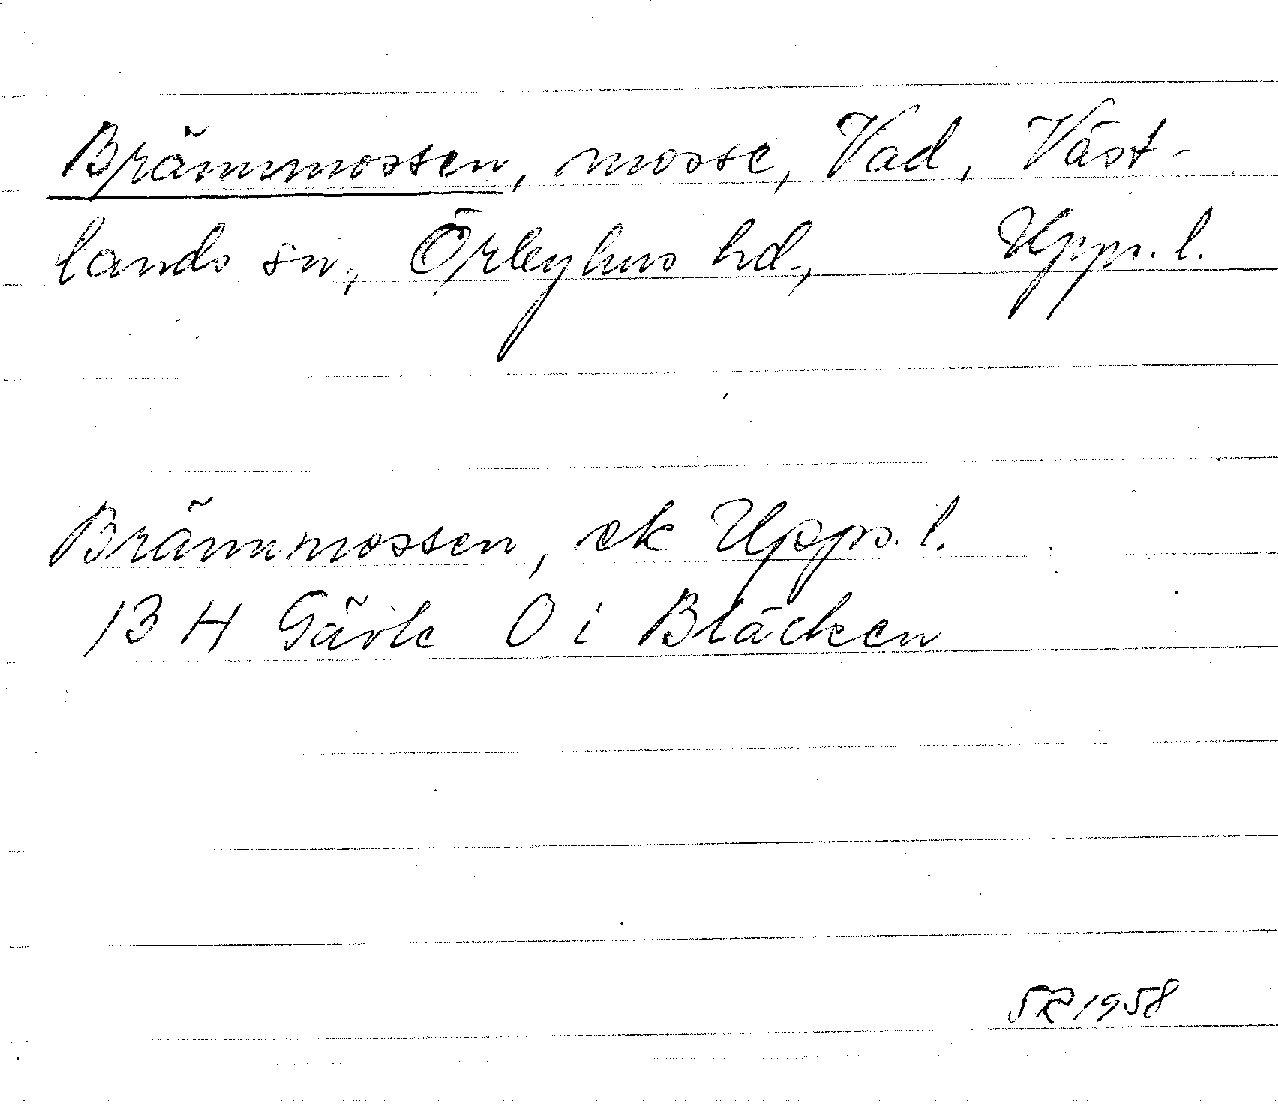 Brämmossen, mosse, Vad, Väst-
lands sn, Örbyhus hd, Upps. l.
Brämmossen, ek Upps. l.
13 H Gävle O i Bläcken
SR 1958